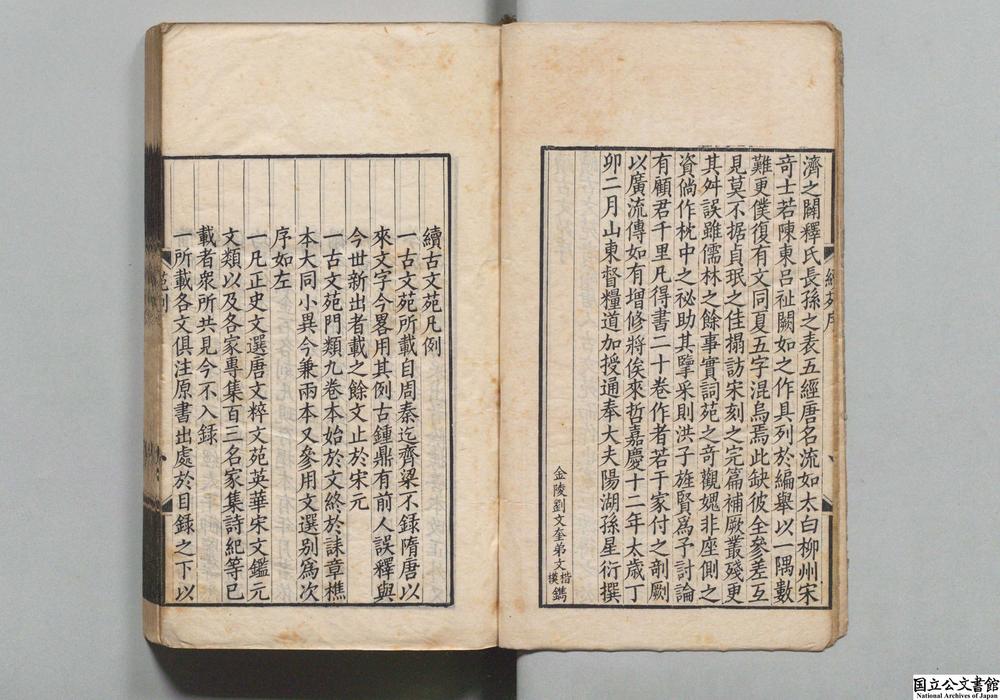 濟之闢釋氏長孫之表五經唐名流如太白柳州宋
奇士若陳東呂祉闕如之作具列於編舉以一隅數
難更僕復有文同夏五字混烏焉此缺彼全參差互
見莫不据貞珉之佳搨訪宋刻之完篇補厥叢殘更
其舛誤雖儒林之餘事實詞苑之奇觀媿非座側之
資倘作枕中之祕助其擥采則洪子旌賢爲予討論
有顧君千里凡得書二十卷作者若干家付之剞劂
以廣流傳如有增修將俟來哲嘉慶十二年太歲丁
卯二月山東督糧道加授通奉大夫陽湖孫星衍撰
金陵劉文奎弟文楷模鐫
續苑序
續古文苑凡例
一古文苑所載自周秦迄齊梁不録隋唐以
來文字今畧用其例古鍾鼎有前人誤釋與
今世新出者載之餘文止於宋元
一古文苑門類九卷本始於文終於誄章樵
本大同小異今兼兩本又參用文選别爲次
序如左
一凡正史文選唐文粹文苑英華宋文鑑元
文類以及各家專集百三名家集詩紀等已
載者衆所共見今不入録
一所載各文俱注原書出處於目録之下以
國立公文書館
National Archives of Japan